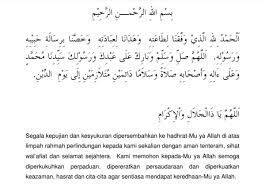 بِسْمِ اللهِ الرَّحْمَـٰنِ الرَّحِيْمِ
اَلْحَمْدُ لِلّٰهِ الَّذِيْ وَفَّقَنَا لِطَاعَتِهِ وَهَدَانَا لِعِبَادَتِهِ وَخَصَّنَا بِرِسَالَةِ حَبِيْبِهِ
وَرَسُوْلِهِ. اَللّٰهُمَّ صَلِّ وَسَلِّمْ وَبَارِكْ عَلَى عَبْدِكَ وَرَسُوْلِكَ سَيِّدِنَا مُحَمَّدٍ
وَعَلَى ءَالِهِ وَأَصْحَابِهِ صَلَاةً وَسَلَامًا دَائِمَيْنِ مُتَلَازِمَيْنِ إِلَى يَوْمِ الدِّيْنِ.
اَللّٰهُمَّ يَا ذَا الْجَلَالِ وَالْإِكْرَامِ
Segala kepujian dan kesyukuran dipersembahkan ke hadhrat-Mu ya Allah di atas
limpah rahmah perlindungan kepada kami sekalian dengan aman tenteram, sihat
wal'afiat dan selamat sejahtera. Kami memohon kepada-Mu ya Allah semoga
diperkukuhkan perpaduan, dipereratkan persaudaraan dan diperkuatkan
keazaman, hasrat dan cita-cita agar sentiasa mendapat keredhaan-Mu ya Allah.